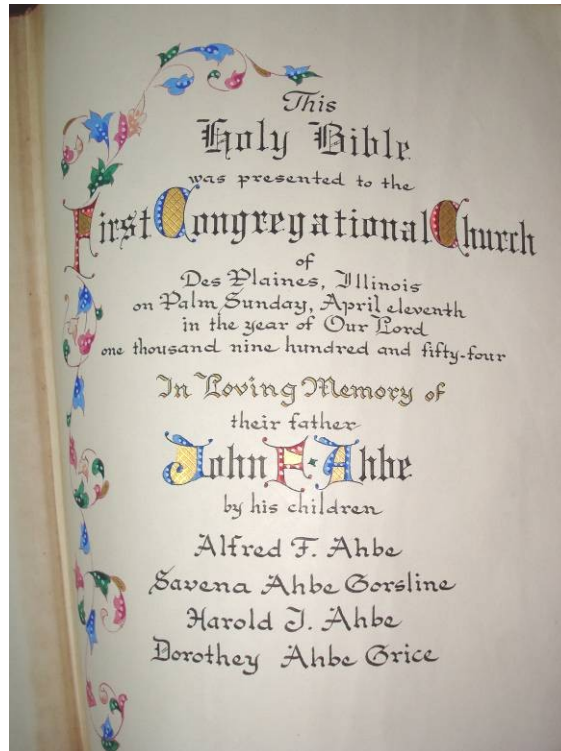 This
Holy Bible
was presented to the
First Congregational Church
of
Des Plaines, Illinois
on Palm Sunday, April eleventh
in the year of Our Lord
one thousand nine hundred and fifty-four
In Loving Memory of
their father
John F. Ahbe
by his children
Alfred F. Ahbe
Savena Ahbe Gorsline
Harold J. Ahbe
Dorothey Ahbe Grice